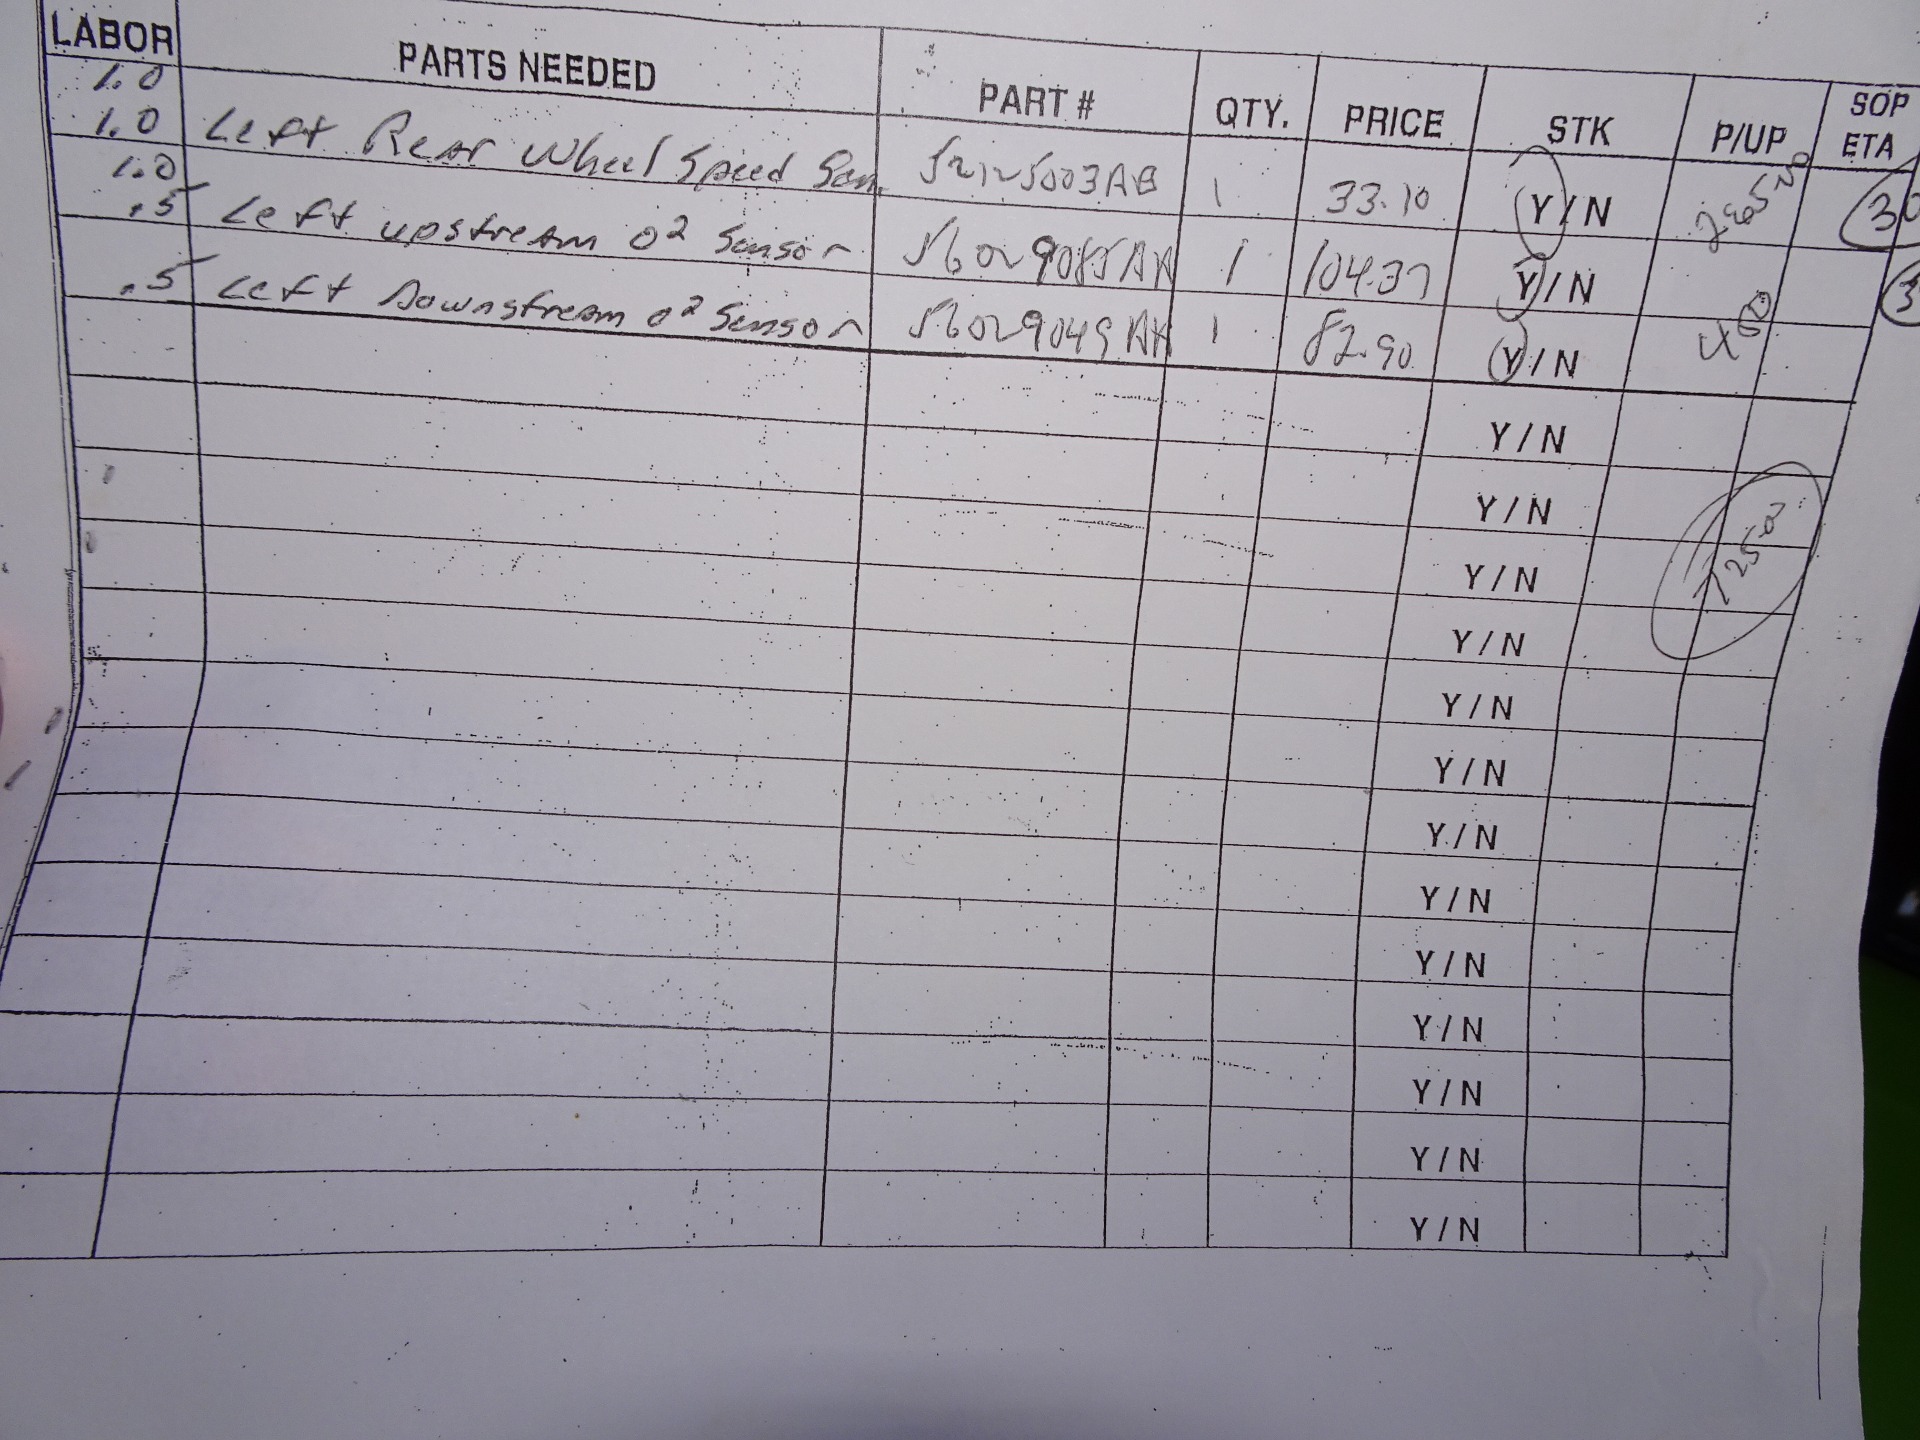 LABOR PARTS NEEDED PART # QTY. PRICE STK P/UP SOP ETA
1.0
1.0 Left Rear Wheel Speed Sen. 52125003AB 1 33.10 Y/N
1.0
.5 Left upstream O2 Sensor 1 104.37 Y/N
.5 Left Downstream O2 Sensor 1 82.90 Y/N
Y/N
Y/N
725.00
Y/N
Y/N
Y/N
Y/N
Y/N
Y/N
Y/N
Y/N
Y/N
Y/N
Y/N